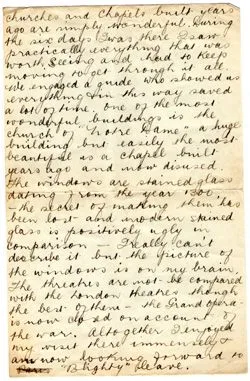 churches and chapels built years
ago are simply wonderful. During
the six days I was there I saw
practically everything that was
worth seeing and had to keep
moving to get through it all
We engaged a guide who showed us
everything and in this way saved
a lot of time. One of the most
wonderful buildings is the
church of "Notre Dame" a huge
building but easily the most
beautiful is a chapel built
years ago and now disused.
The windows are stained glass
dating from the year
- the secret of making them has
been lost and modern stained
glass is positively ugly in
comparison - I really can't
describe it but the picture of
the windows is on my brain.
The theatres are not be compared
with the London theatres though
the best of them - the Grand opera-
is now closed on account of
the war. Altogether I enjoyed
my visit there immensely &
am now looking forward to
"Blighty" leave.